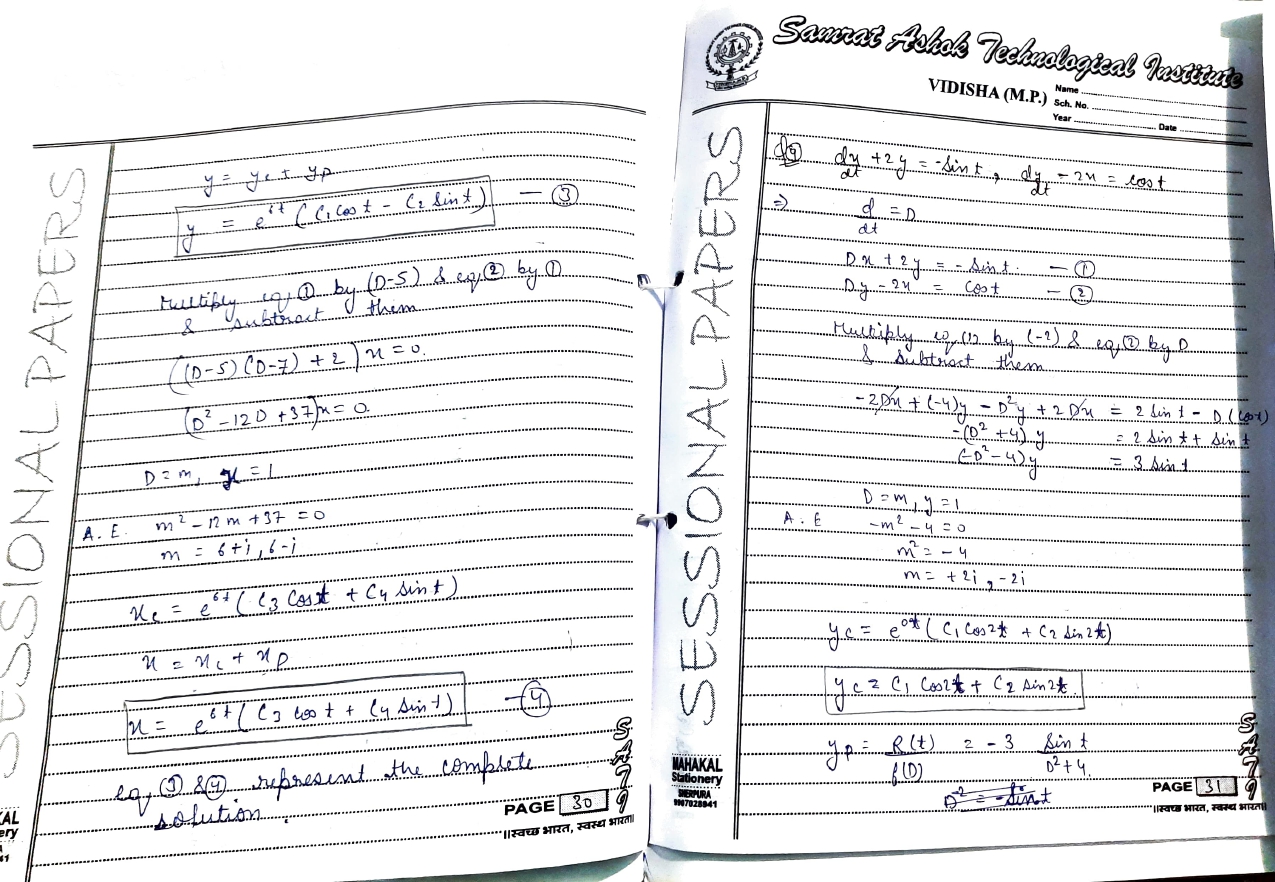 SESSIONAL PAPERS
y = yc + yp
y = e^6t (C1 Cos t - C2 Sin t) — ③
Multiply eq ① by (D-5) & eq ② by ①
& subtract them
((D-5) (D-7) + 2) x = 0
(D² - 12D + 37) x = 0
D = m, x = 1
A.E. m² - 12m + 37 = 0
m = 6+i, 6-i
xc = e^6t (C3 Cos t + C4 sin t)
x = xc + xp
x = e^6t (C3 cos t + C4 sin t) — ④
eq ③ & ④ represent the complete
solution.
PAGE 30
॥स्वच्छ भारत, स्वस्थ भारत॥
SATI
Samrat Ashok Technological Institute
VIDISHA (M.P.)
Name
Sch. No.
Year Date
SESSIONAL PAPERS
dx/dt + 2y = -Sin t, dy/dt - 2x = cost
⇒ d/dt = D
Dx + 2y = - Sin t. — ①
Dy - 2x = Cost — ②
Multiply eq (1) by (-2) & eq ② by D
& Subtract them
-2Dx + (-4)y - D²y + 2Dx = 2 Sin t - D (Cost)
-(D² + 4) y = 2 Sin t + Sin t
(-D² - 4)y = 3 Sin t
D = m, y = 1
A.E -m² - 4 = 0
m² = - 4
m = +2i, -2i
yc = e^0t (C1 Cos2t + C2 Sin2t)
yc = C1 Cos2t + C2 Sin2t
yp = R(t)/f(D) = -3 Sin t/D²+4
MAHAKAL
Stationery
SHERPURA
PAGE 31
॥स्वच्छ भारत, स्वस्थ भारत॥
SATI